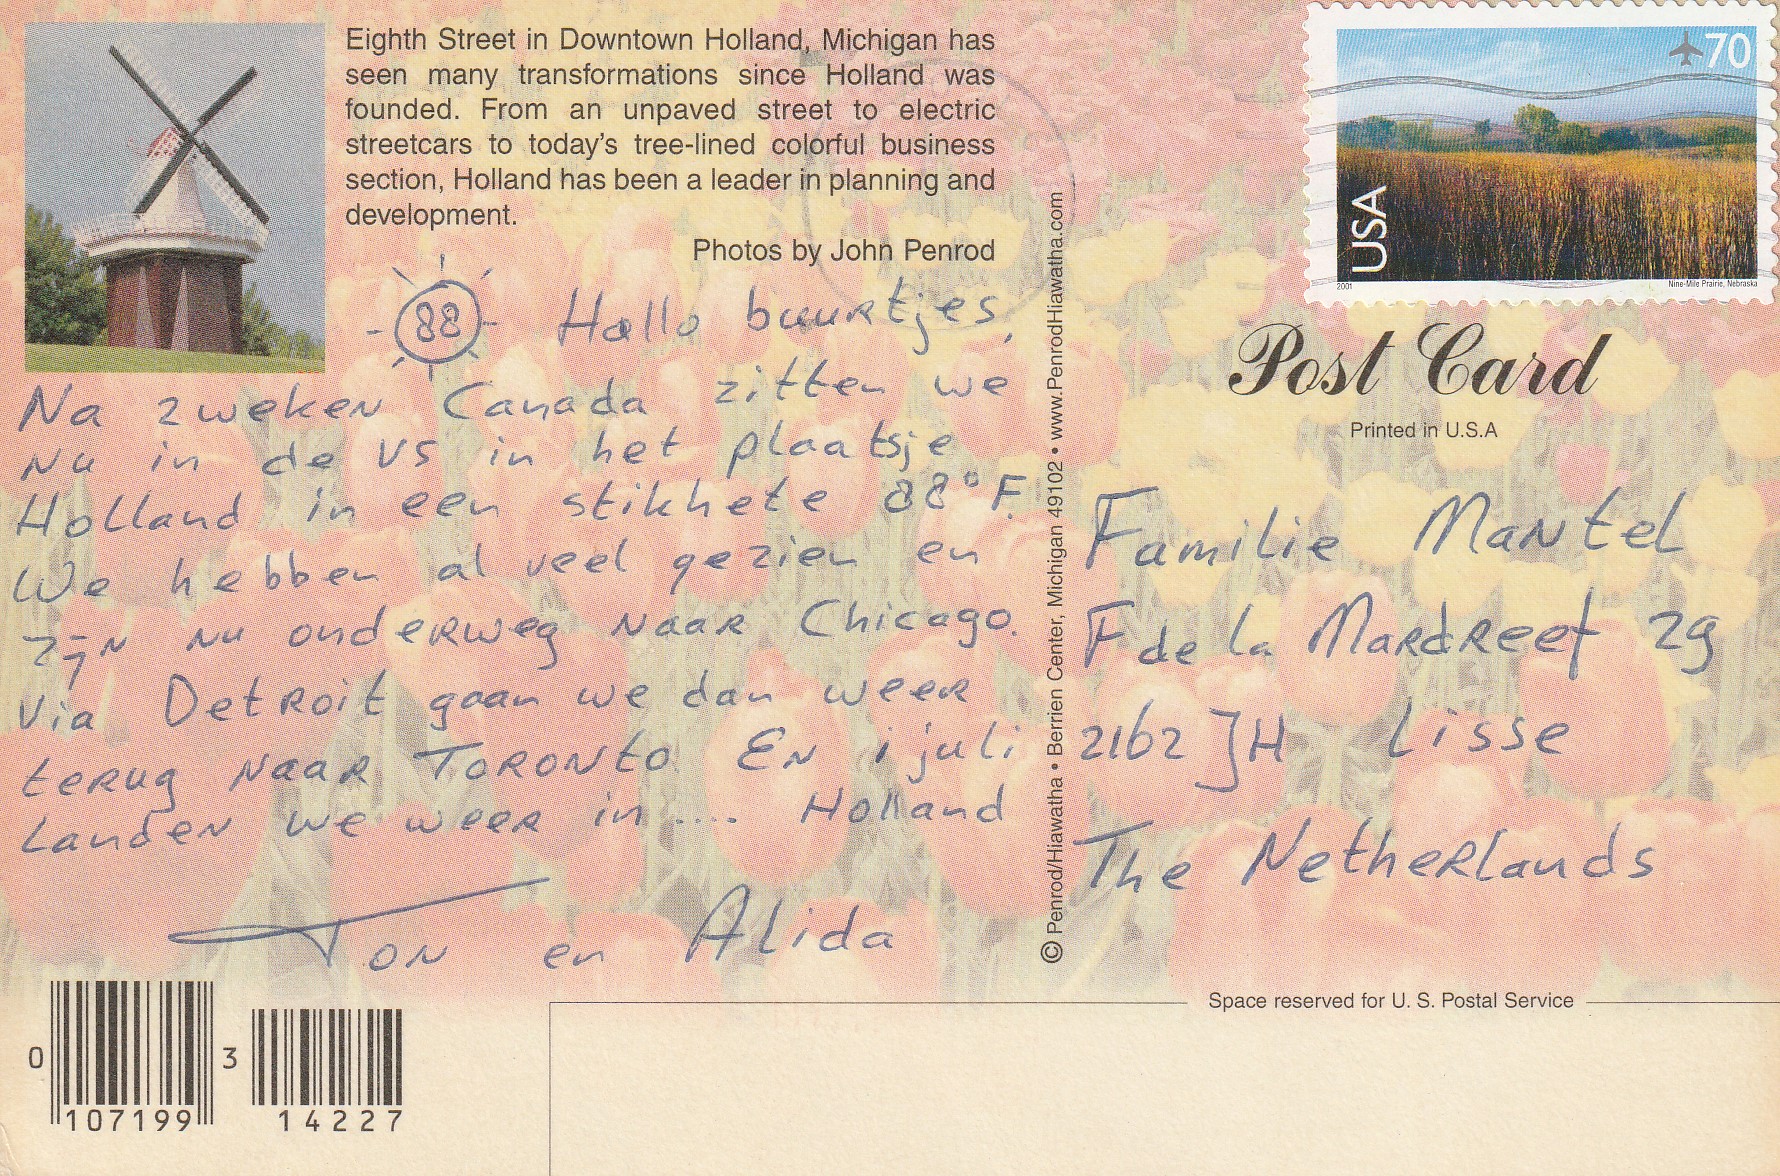 Eighth Street in Downtown Holland, Michigan has
seen many transformations since Holland was
founded. From an unpaved street to electric
streetcars to today's tree-lined colorful business
section, Holland has been a leader in planning and
development.
Photos by John Penrod
88 Hallo buurtjes,
Na 2 weken Canada zitten we
nu in de VS in het plaatsje
Holland in een stikhete 88°F.
We hebben al veel gezien en
zijn nu onderweg naar Chicago.
Via Detroit gaan we dan weer
terug naar Toronto. En 1 juli
landen we weer in .... Holland
Ton en Alida
0 107199 3 14227
© Penrod/Hiawatha • Berrien Center, Michigan 49102 • www.PenrodHiawatha.com
70
USA
2001
Nine-Mile Prairie, Nebraska
Post Card
Printed in U.S.A
Familie Mantel
F de la Mardreef 29
2162 JH Lisse
The Netherlands
Space reserved for U. S. Postal Service